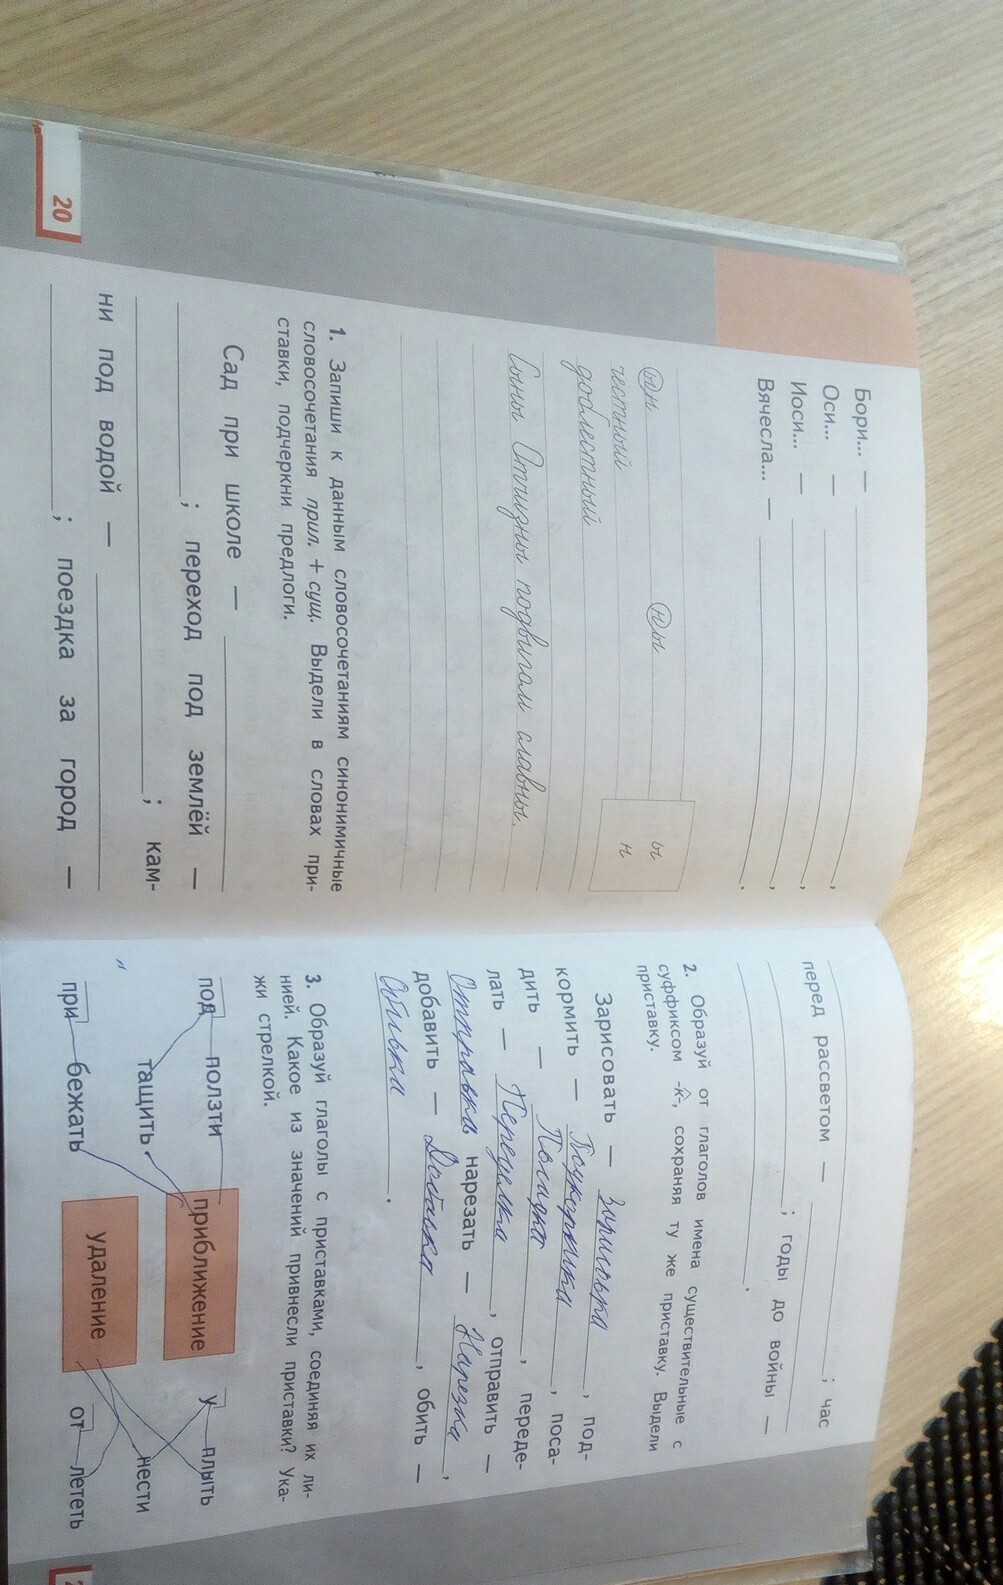 Бори... —
Оси... — ,
Иоси... — ,
Вячесла... — ,
.
ын ны ы
честный н
доблестный
Сыны Отчизны подвигам славны.
1. Запиши к данным словосочетаниям синонимичные
словосочетания прил. + сущ. Выдели в словах при-
ставки, подчеркни предлоги.
Сад при школе —
; переход под землёй —
; кам-
ни под водой —
; поездка за город —
20
; час
перед рассветом —
; годы до войны —
.
2. Образуй от глаголов имена существительные с
суффиксом -к-, сохраняя ту же приставку. Выдели
приставку.
Зарисовать — Зарисовка, под-
кормить — Подкормка, поса-
дить — Посадка, переде-
лать — Переделка, отправить —
Отправка нарезать — Нарезка,
добавить — Добавка, обить —
Обивка.
3. Образуй глаголы с приставками, соединяя их ли-
нией. Какое из значений привнесли приставки? Ука-
жи стрелкой.
под ползти приближение у плыть
тащить нести
при бежать удаление от лететь